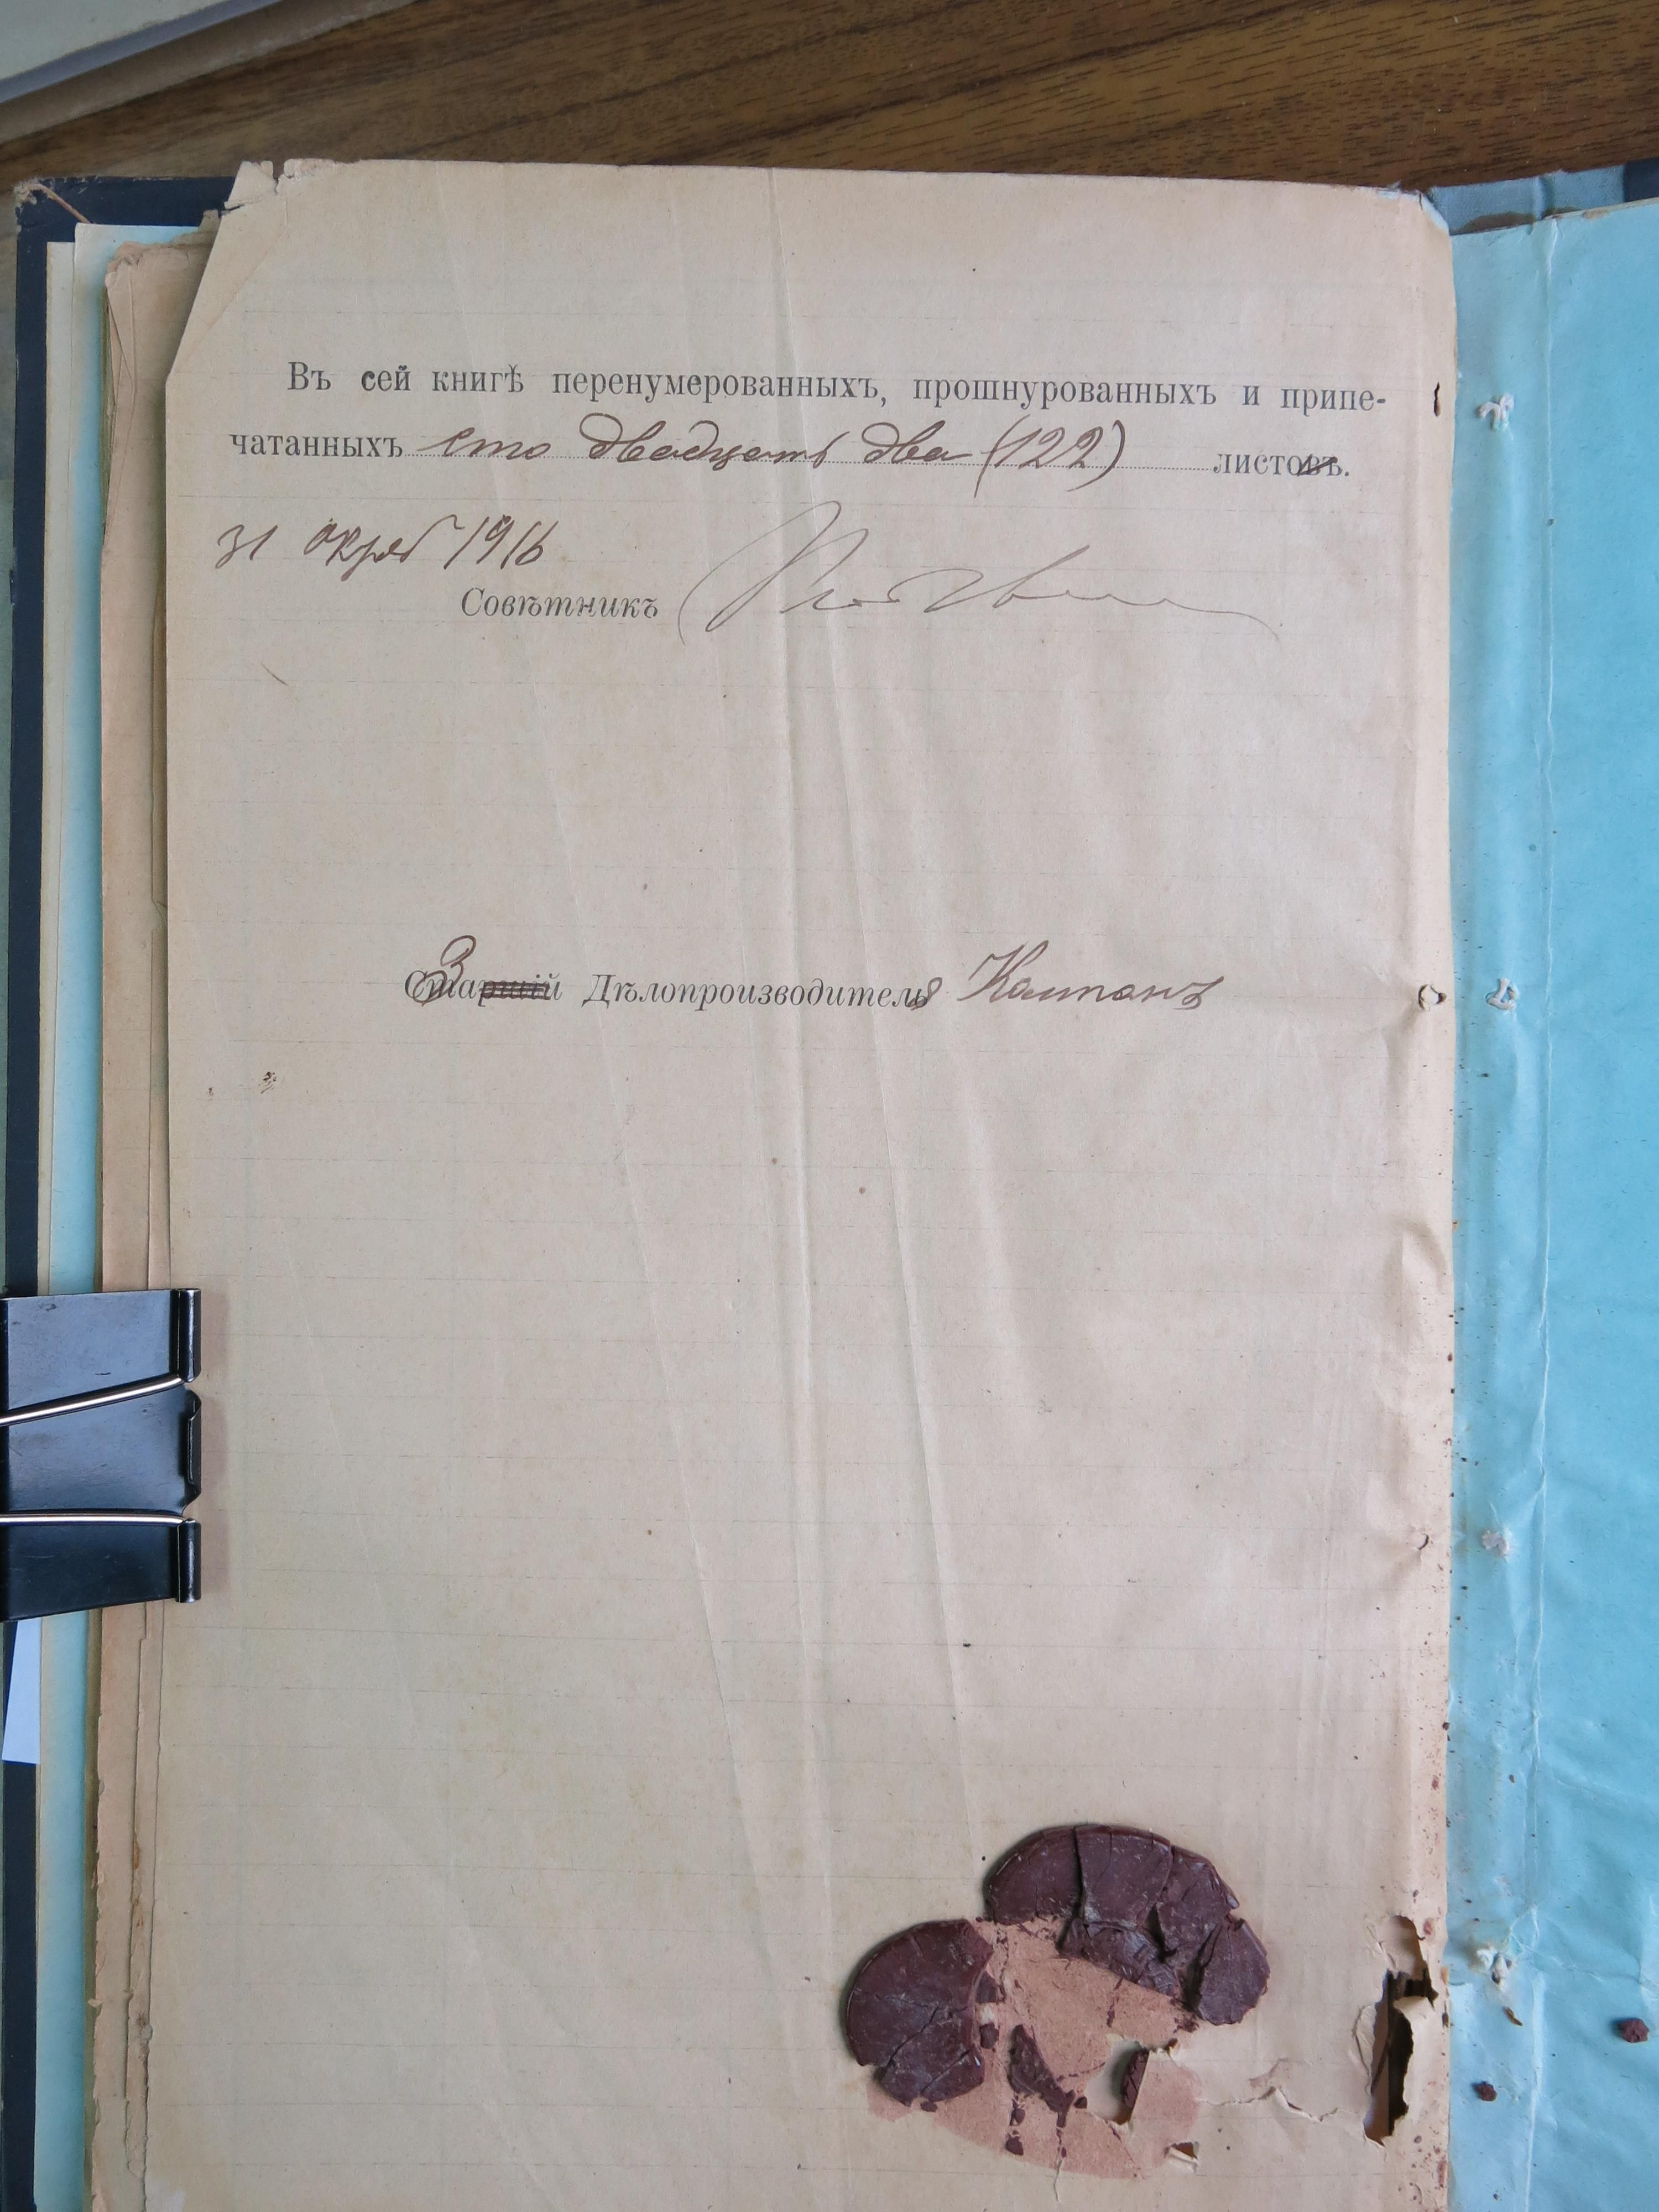 Въ сей книгѣ перенумерованныхъ, прошнурованныхъ и припе-
чатанныхъ сто двадцать два (122) листовъ.
31 октяб 1916
Совѣтникъ
За Дѣлопроизводителя